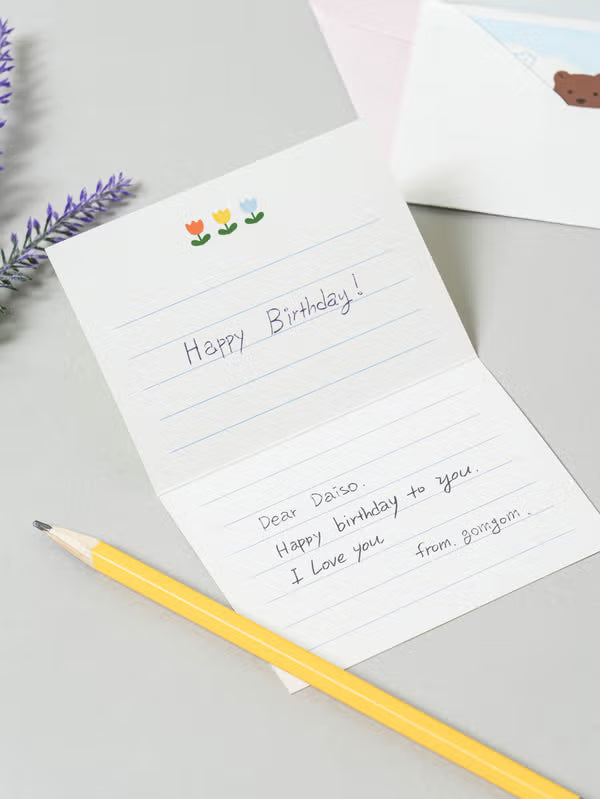 Happy Birthday!
Dear Daiso.
Happy birthday to you.
I Love you
from. gomgom.